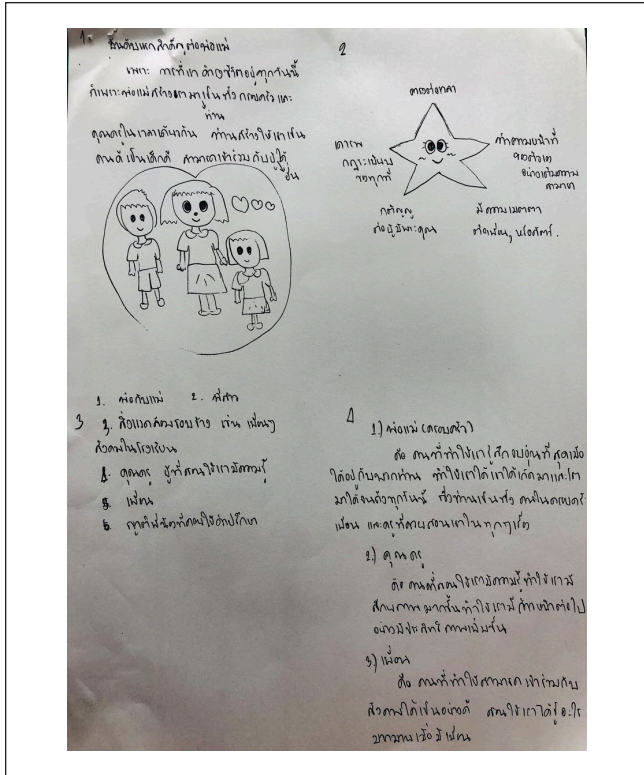 1. ฉันกับแหกสำคัญต่อพ่อแม่
เพราะ การที่เราดำรงชีวิตอยู่ทุกวันนี้
ก็เพราะพ่อแม่สร้างเรามาเป็นทั้งครอบครัวและ
ท่าน
คุณครูในเวลาเดียวกัน ท่านสร้างให้เราเป็น
คนดี เป็นเด็กดี สามารถเข้าร่วมกับผู้
อื่น
2
ตรงต่อเวลา
เคารพ
กฎระเบียบ
ของทุกที่
ทำตามหน้าที่
ของตัวเอง
อย่างเต็มความ
สามารถ
กตัญญู
ต่อผู้มีพระคุณ
มีความเมตตา
ต่อเพื่อนๆ หรือสัตว์.
3
1. พ่อกับแม่ 2. พี่สาว
3. สิ่งแวดล้อมรอบข้าง เช่น เพื่อนๆ
สังคมในโรงเรียน
4. คุณครู ผู้ที่สอนให้เรามีความรู้
5. เพื่อน
6. ญาติพี่น้องที่คอยให้คำปรึกษา
4
1.) พ่อแม่ (ครอบครัว)
คือ คนที่ทำให้เรารู้สึกอบอุ่นที่สุดเมื่อ
ได้อยู่กับพวกท่าน ทำให้เราได้เกิดมาและโต
มาได้จนถึงทุกวันนี้ ซึ่งท่านเป็นทั้ง คนในครอบครัว
เพื่อน และครูที่ควรสอนเราในทุกๆเรื่อง
2.) คุณครู
คือ คนที่สอนให้เรามีความรู้ ทำให้เรามี
ศักยภาพมากขึ้นทำให้เรามี ก้าวหน้าต่อไป
อย่างมีประสิทธิภาพเพิ่มขึ้น
3.) เพื่อน
คือ คนที่ทำให้สามารถเข้าร่วมกับ
สังคมได้เป็นอย่างดี สอนให้เราได้รู้อะไร
มากมายเมื่อมีเพื่อน